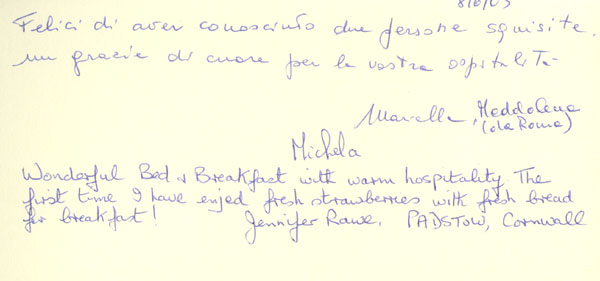 8/6/03
Felici di aver conosciuto due persone squisite.
un grazie di cuore per la vostra ospitalità
Marcella, Maddalena
(da Roma)
Michela
Wonderful Bed & Breakfast with warm hospitality. The
first time I have enjed fresh strawberries with fresh bread
for breakfast!
Jennifer Rawe, PADSTOW, Cornwall